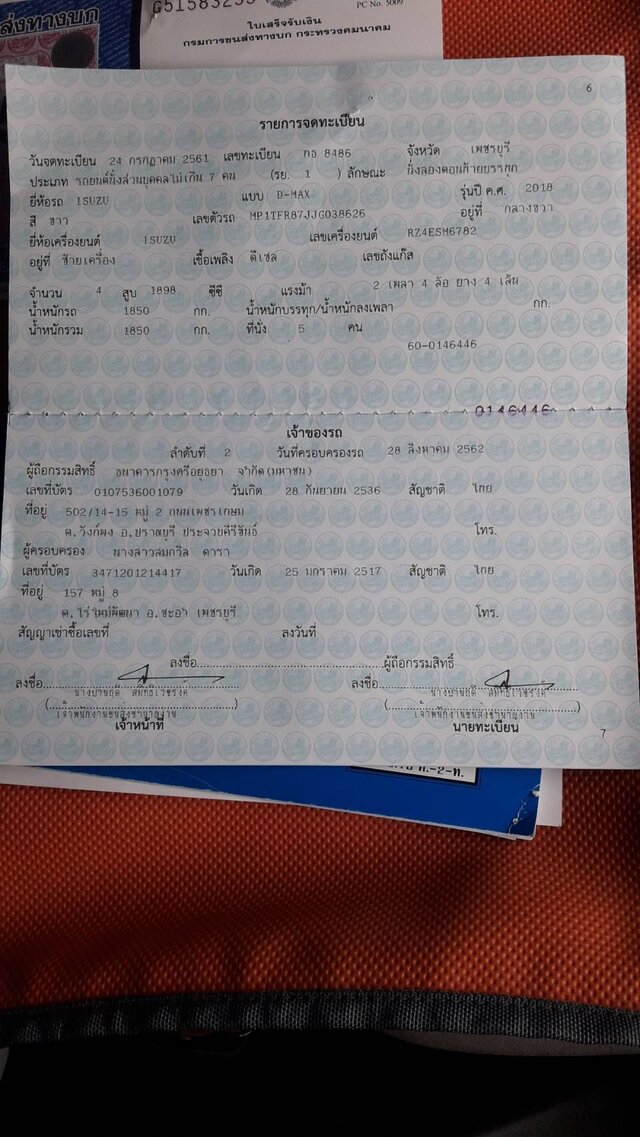 ส่งทางบก
G51583255
PC No. 5009
ใบเสร็จรับเงิน
กรมการขนส่งทางบก กระทรวงคมนาคม
6
รายการจดทะเบียน
วันจดทะเบียน 24 กรกฎาคม 2561 เลขทะเบียน กอ 8486 จังหวัด เพชรบุรี
ประเภท รถยนต์นั่งส่วนบุคคลไม่เกิน 7 คน (รย. 1 ) ลักษณะ นั่งสองตอนท้ายบรรทุก
ยี่ห้อรถ ISUZU แบบ D-MAX รุ่นปี ค.ศ. 2018
สี ขาว เลขตัวรถ MP1TFR87JJG038626 อยู่ที่ กลางขวา
ยี่ห้อเครื่องยนต์ ISUZU เลขเครื่องยนต์ RZ4ESM6782
อยู่ที่ ซ้ายเครื่อง เชื้อเพลิง ดีเซล เลขถังแก๊ส
จำนวน 4 สูบ 1898 ซีซี แรงม้า 2 เพลา 4 ล้อ ยาง 4 เส้น
น้ำหนักรถ 1850 กก. น้ำหนักบรรทุก/น้ำหนักลงเพลา กก.
น้ำหนักรวม 1850 กก. ที่นั่ง 5 คน
60-0146446
0146446
เจ้าของรถ
ลำดับที่ 2 วันที่ครอบครองรถ 28 สิงหาคม 2562
ผู้ถือกรรมสิทธิ์ ธนาคารกรุงศรีอยุธยา จำกัด(มหาชน)
เลขที่บัตร 0107536001079 วันเกิด 28 กันยายน 2536 สัญชาติ ไทย
ที่อยู่ 502/14-15 หมู่ 2 ถนนเพชรเกษม
ต.วังก์พง อ.ปราณบุรี ประจวบคีรีขันธ์ โทร.
ผู้ครอบครอง นางสาวสมถวิล ดารา
เลขที่บัตร 3471201214417 วันเกิด 25 มกราคม 2517 สัญชาติ ไทย
ที่อยู่ 157 หมู่ 8
ต.ไร่ใหม่พัฒนา อ.ชะอำ เพชรบุรี โทร.
สัญญาเช่าซื้อเลขที่ ลงวันที่
ลงชื่อ ผู้ถือกรรมสิทธิ์
ลงชื่อ ลงชื่อ
เจ้าพนักงานขนส่งชำนาญงาน เจ้าพนักงานขนส่งชำนาญงาน
เจ้าหน้าที่ นายทะเบียน
7